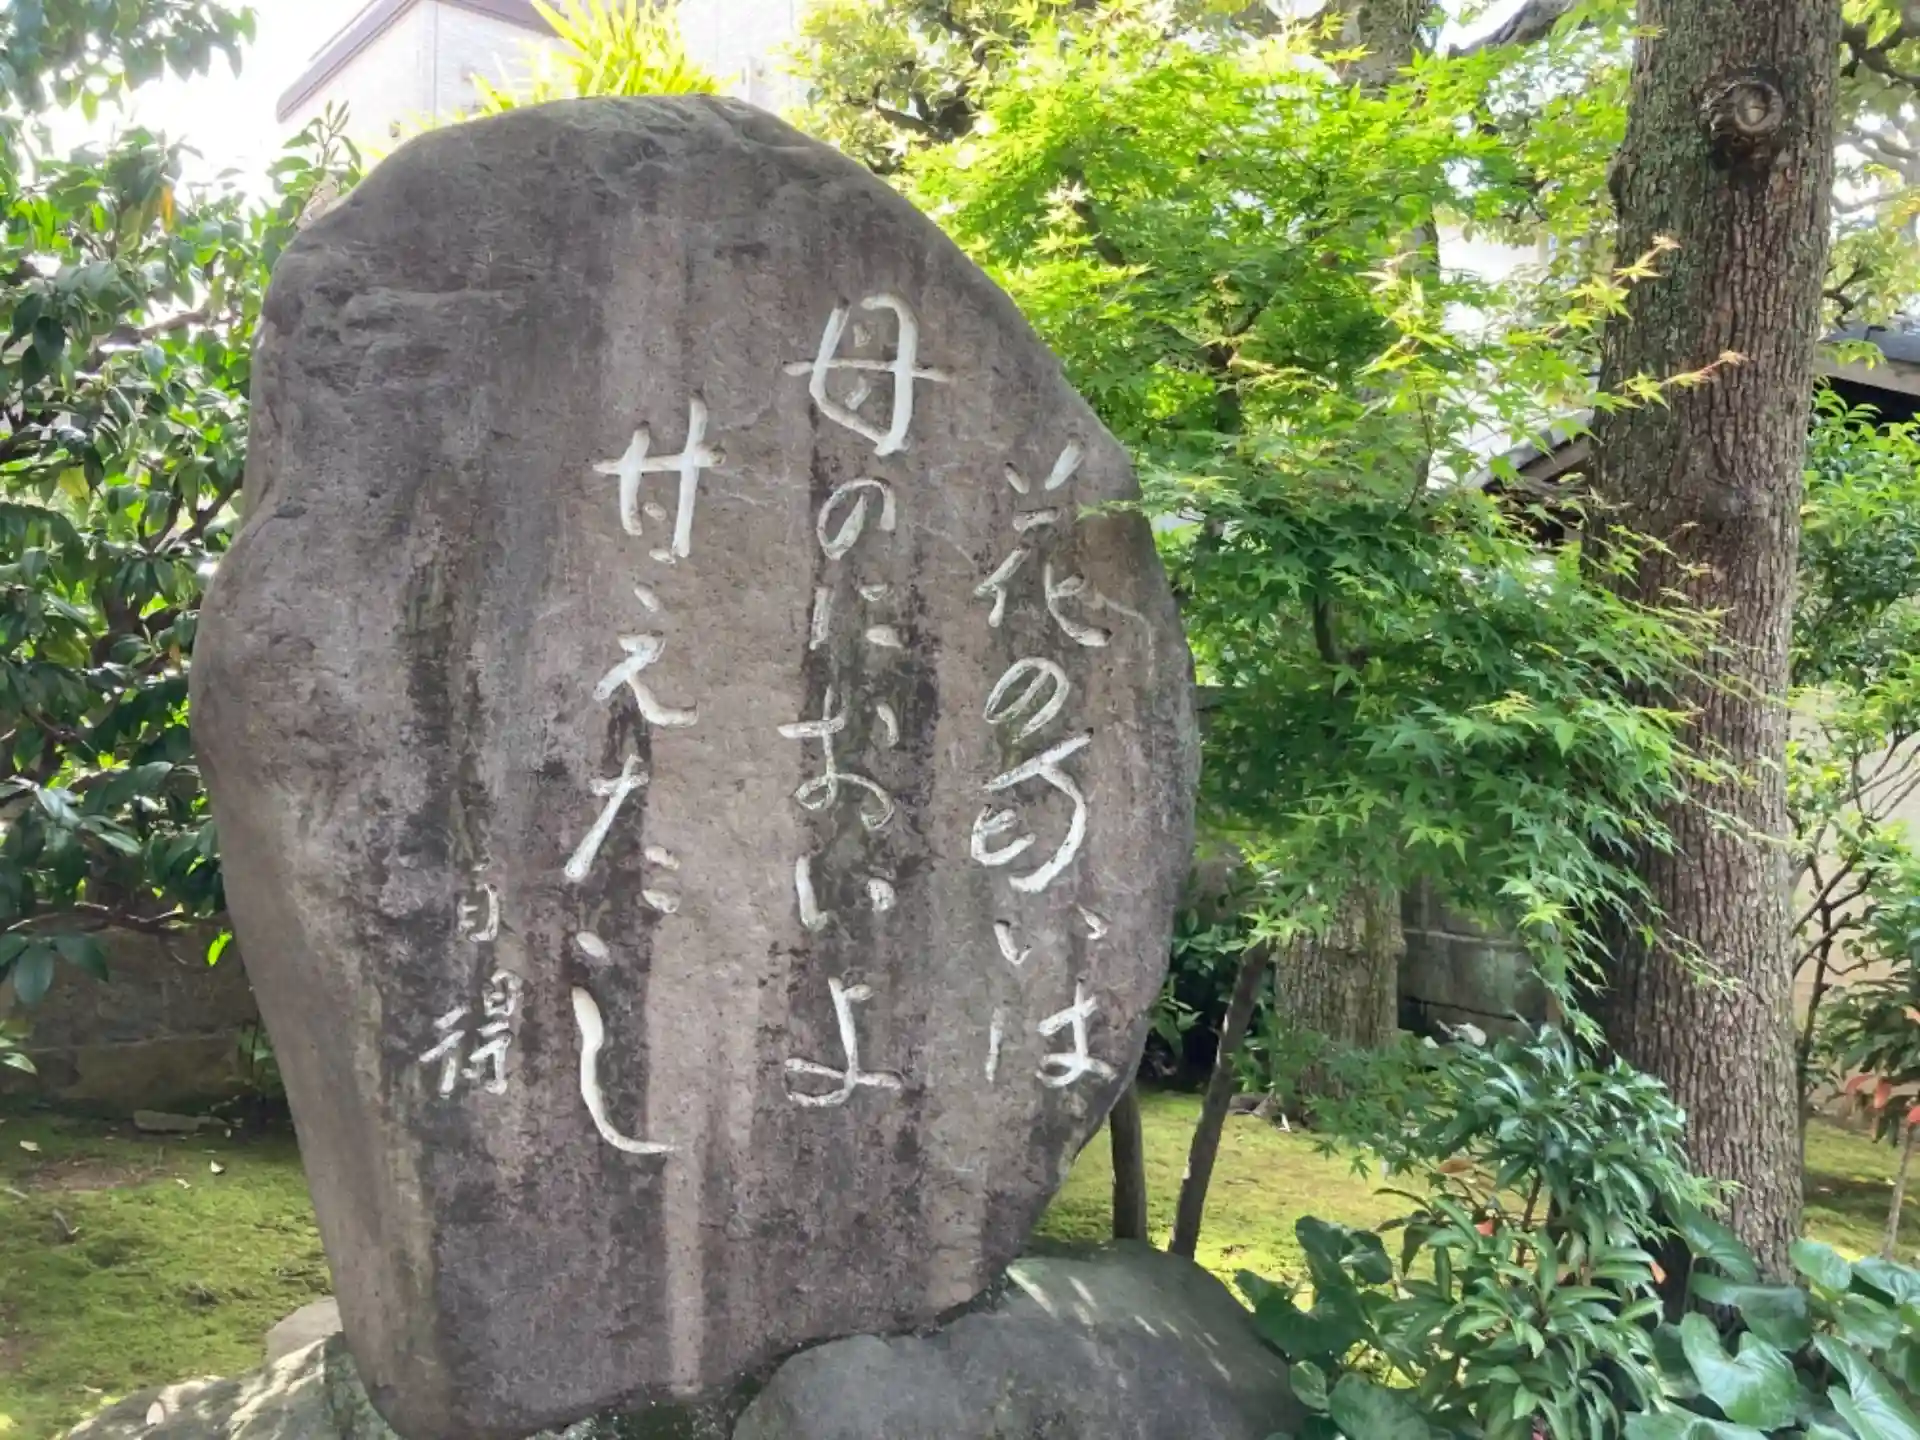 花の匂いは
母のにおいよ
甘えたし